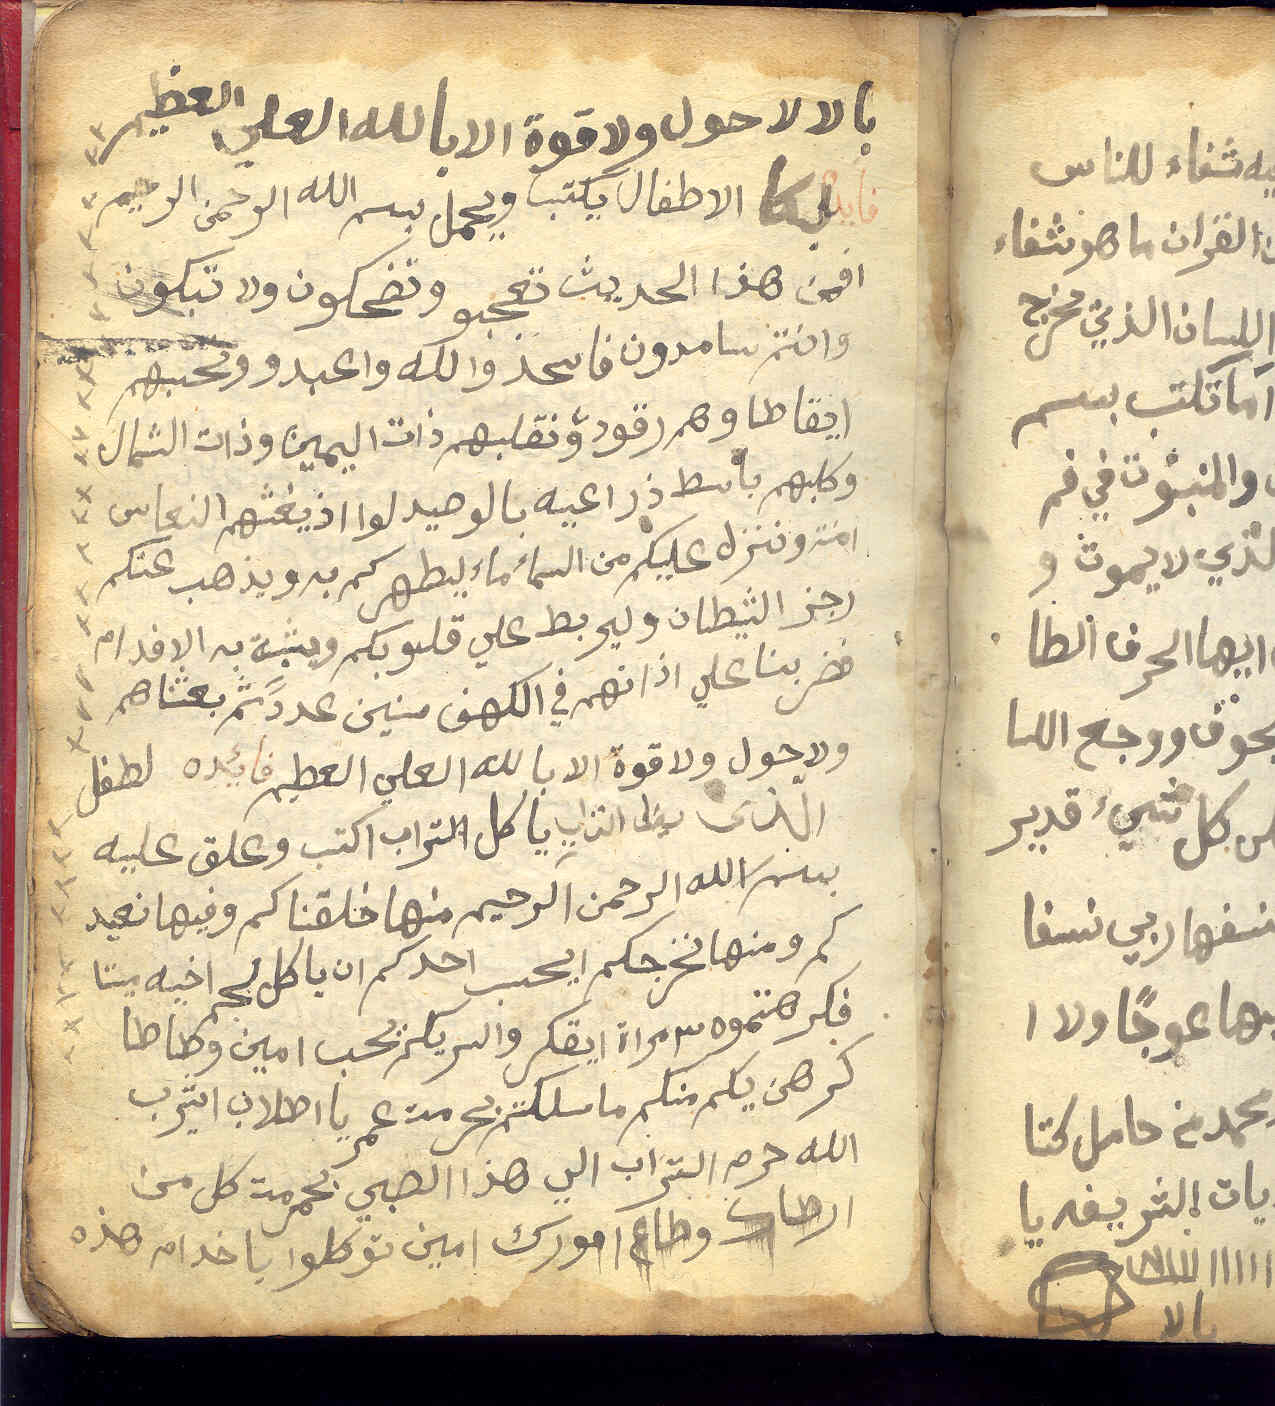 بالا لا حول ولا قوة الا بالله العلي العظيم
فايده لبكا الاطفال يكتب ويحمل بسم الله الرحمن الرحيم
افمن هذا الحديث تعجبو وتضحكون ولا تبكون
وانتم سامدون فاسجذوا لله واعبدو وتحسبهم
ايقاطا وهم رقود ونقلبهم ذات اليمين وذات الشمال
وكلبهم باسط ذراعيه بالوصيد لوا اذ يغشهم النعاس
امنة وننزل عليكم من السماء ماء ليطهركم به ويذهب عنكم
رجز الشيطان وليربط علي قلوبكم ويثبة به الاقدام
فضربنا علي اذانهم في الكهف سنين عددا ثم بعثناهم
ولا حول ولا قوة الا بالله العلي العظيم فايده لطفل
الذى ياكل التراب اكتب وعلق عليه
بسم الله الرحمن الرحيم منها خلقناكم وفيها نعيد
كم ومنها نخرجكم ايحب احدكم ان ياكل لحم اخيه ميتا
فكرهتموه ٣ مراة امين
كرهن منكم ما سلكتم بحرمت يا
الله حرم التراب الي هذا الصبي بحرمت كل من
امين توكلوا يا خدام هذه
يه شفاء للناس
القران ما هو شفاء
اللسان الذي تخرج
اما تكتب بسم
في فم
لذي لا يموت و
ايها الحرف الطا
ووجع اللسا
كل شيء قدير
نسفها ربي نسفا
يها عوجا ولا ا
محمد من حامل كتا
يات الشريفه يا
بالا